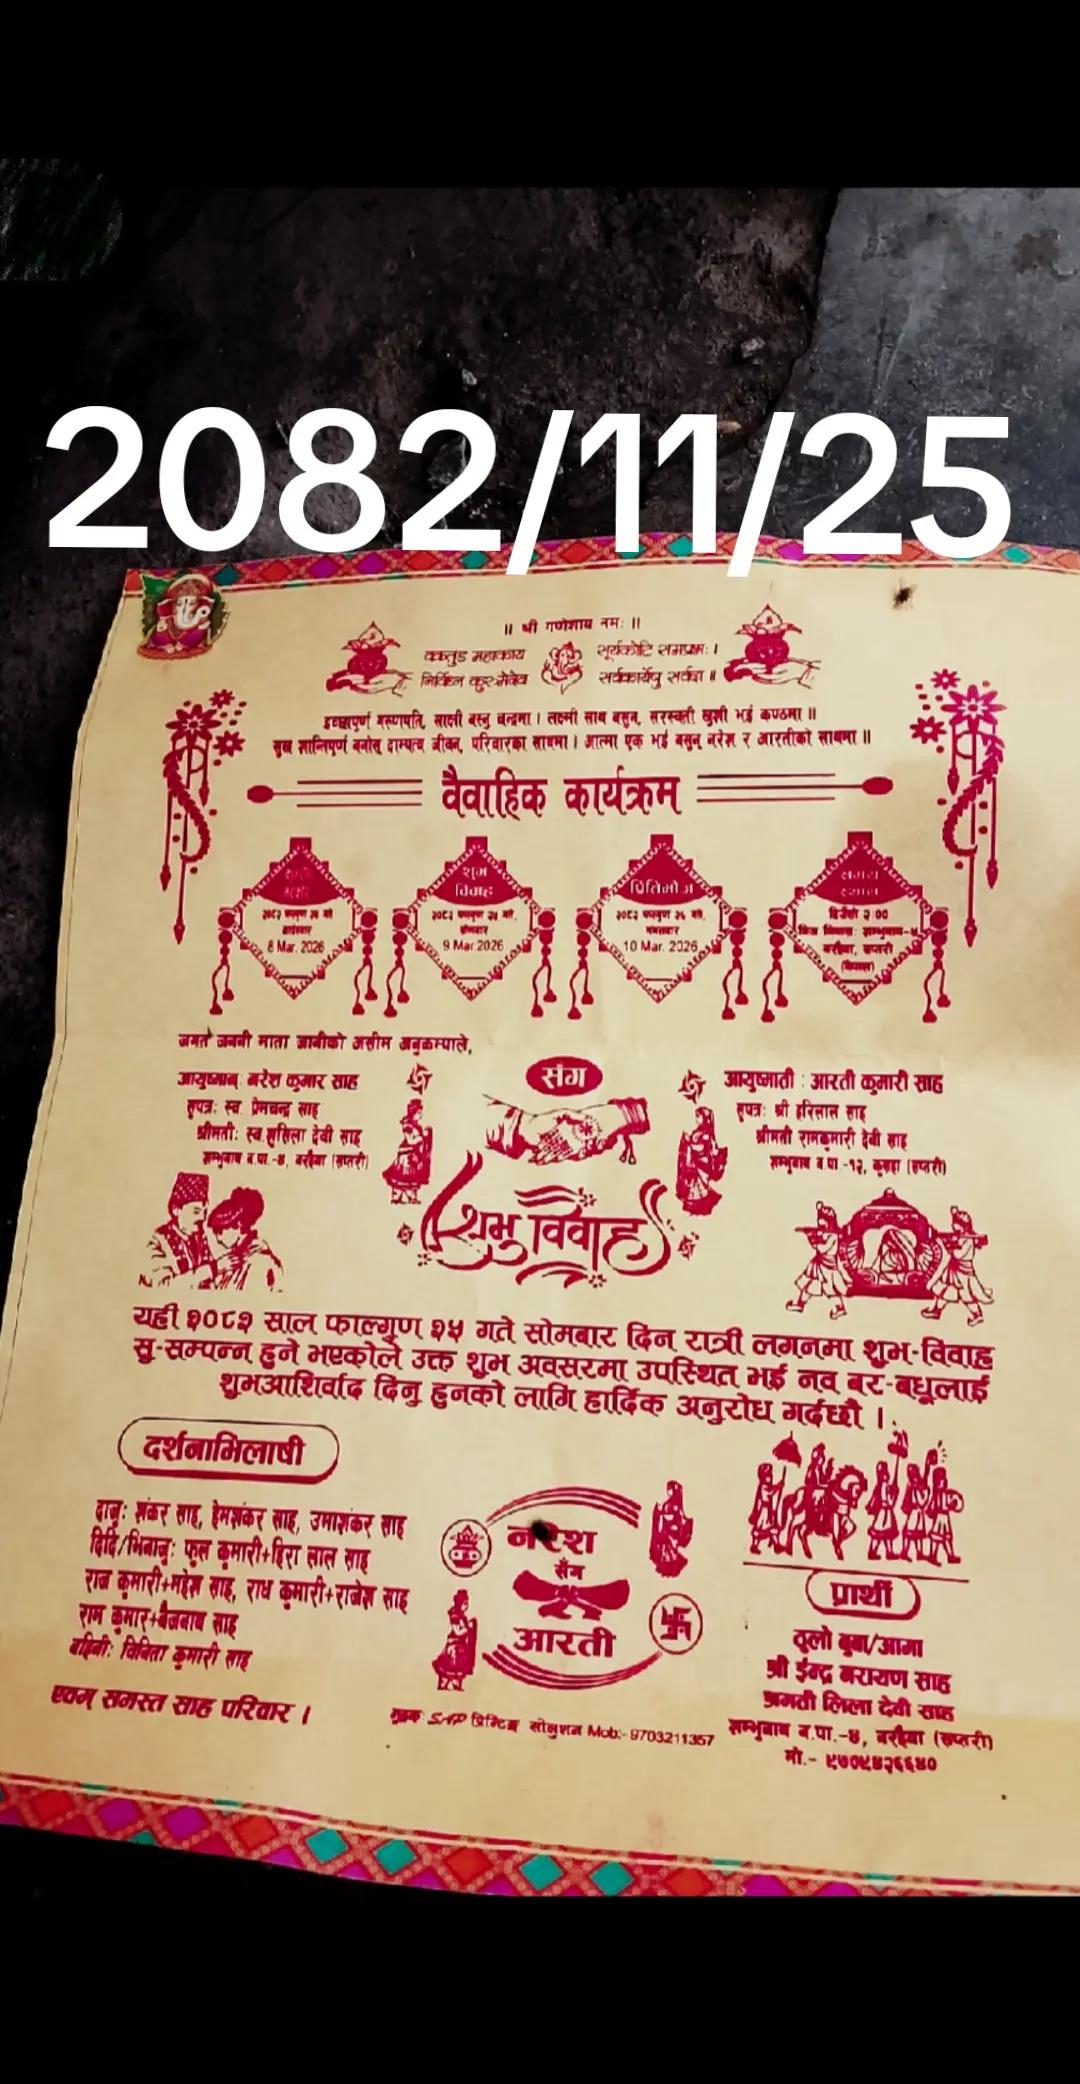 2082/11/25
॥ श्री गणेशाय नमः ॥
वक्रतुंड महाकाय सूर्यकोटि समप्रभः।
निर्विघ्नं कुरुमेदेव सर्वकार्येषु सर्वदा ॥
साक्षी बस्नु चन्द्रमा। लक्ष्मी साथ बसुन्, सरस्वती खुशी भई कण्ठमा ॥
सुख शान्तिपूर्ण बनोस् दाम्पत्य जीवन, परिवारका साथमा। आत्मा एक भई बसुन् नरेश र आरतीको साथमा ॥
वैवाहिक कार्यक्रम
8 Mar. 2026
शुभ
विवाह
२०८२ फाल्गुण २५ गते,
सोमबार
9 Mar.2026
प्रितिभोज
२०८२ फाल्गुण २६ गते,
मंगलबार
10 Mar. 2026
समय
स्थान
दिउँसो २:०० 
निज निवासः शम्भुनाथ-४
बरहैवा, सप्तरी
(नेपाल)
जगत जननी माता जानीको असीम अनुकम्पाले,
आयुष्मान् नरेश कुमार साह
सुपुत्रः स्व. प्रेमचन्द्र साह
श्रीमतीः स्व.सुसिला देवी साह
शम्भुनाथ न.पा.-४, बरहैवा (सप्तरी)
संग
आयुष्माती : आरती कुमारी साह
सुपुत्रः श्री हरिलाल साह
श्रीमती रामकुमारी देवी साह
शम्भुनाथ न.पा -१२, (सप्तरी)
शुभ विवाह
यही २०८२ साल फाल्गुण २५ गते सोमबार दिन रात्री लगनमा शुभ-विवाह
सु-सम्पन्न हुने भएकोले उक्त शुभ अवसरमा उपस्थित भई नव बर-बधूलाई
शुभआशिर्वाद दिनु हुनको लागि हार्दिक अनुरोध गर्दछौ ।
दर्शनाभिलाषी
दाजुः शंकर साह, हेमशंकर साह, उमाशंकर साह
दिदि/भिनाजुः फुल कुमारी+हिरा लाल साह
राज कुमारी+महेश साह, राध कुमारी+राजेश साह
राम कुमार+बैजनाथ साह
बहिनीः विनिता कुमारी साह
एवम् समस्त साह परिवार ।
नरेश
सँग
आरती
मुद्रकः SAP प्रिन्टिङ्ग सोलुशन Mob:- 9703211357
प्रार्थी
ठूलो बुबा/आमा
श्री ईन्द्र नरायण साह
श्रमती लिला देवी साह
शम्भुनाथ न.पा.-४, बरहैवा (सप्तरी)
मो.- ९७०९४२६६४०